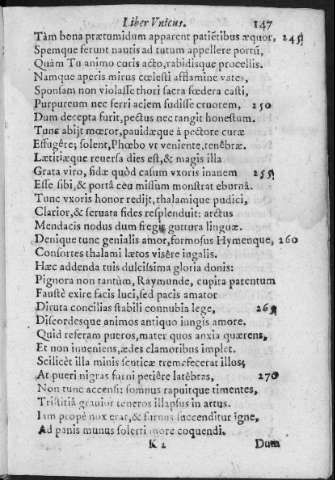 Liber Vnicus. 147
Tàm bona prætumidum apparent patiẽtibus æquor, 245
Spemque ferunt nautis ad tutum appellere portũ,
Quàm Tu animo curis acto, rabidisque procellis.
Namque aperis mirus cœlesti afflamine vates,
Sponsam non violasse thori sacra fœdera casti,
Purpureum nec ferri aciem fudisse cruorem, 250
Dum decepta furit, pectus nec tangit honestum.
Tunc abijt mœror, pauidæque à pectore curæ
Effugêre; solent, Phœbo vt veniente, tenêbræ.
Lætitiæque reuersa dies est, & magis illa
Grata viro, fidæ quòd casum vxoris inanem 255
Esse sibi, & portâ ceu missum monstrat eburnâ.
Tunc vxoris honor redijt, thalamique pudici,
Clarior, & seruata fides resplenduit: arctus
Mendacis nodus dum fregit guttura linguæ.
Denique tunc genialis amor, formosus Hymenque, 260
Consortes thalami lætos visêre ingalis.
Hæc addenda tuis dulcissima gloria donis:
Pignora non tantùm, Raymunde, cupita parentum
Faustè exire facis luci, sed pacis amator
Diruta concilias stabili connubia lege, 265
Discordesque animos antiquo iungis amore.
Quid referam pueros, mater quos anxia quærens,
Et non inueniens, ædes clamoribus implet.
Scilicèt illa minis scuticæ tremefecerat illos;
At pueri nigras furni petiêre latêbras, 270
Non tunc accensi: somnus rapuitque timentes,
Tristitiâ grauior teneros illapsus in artus.
Iam propè nox erat, & furnus succenditur igne,
Ad panis munus solerti more coquendi.
K 2 Dum